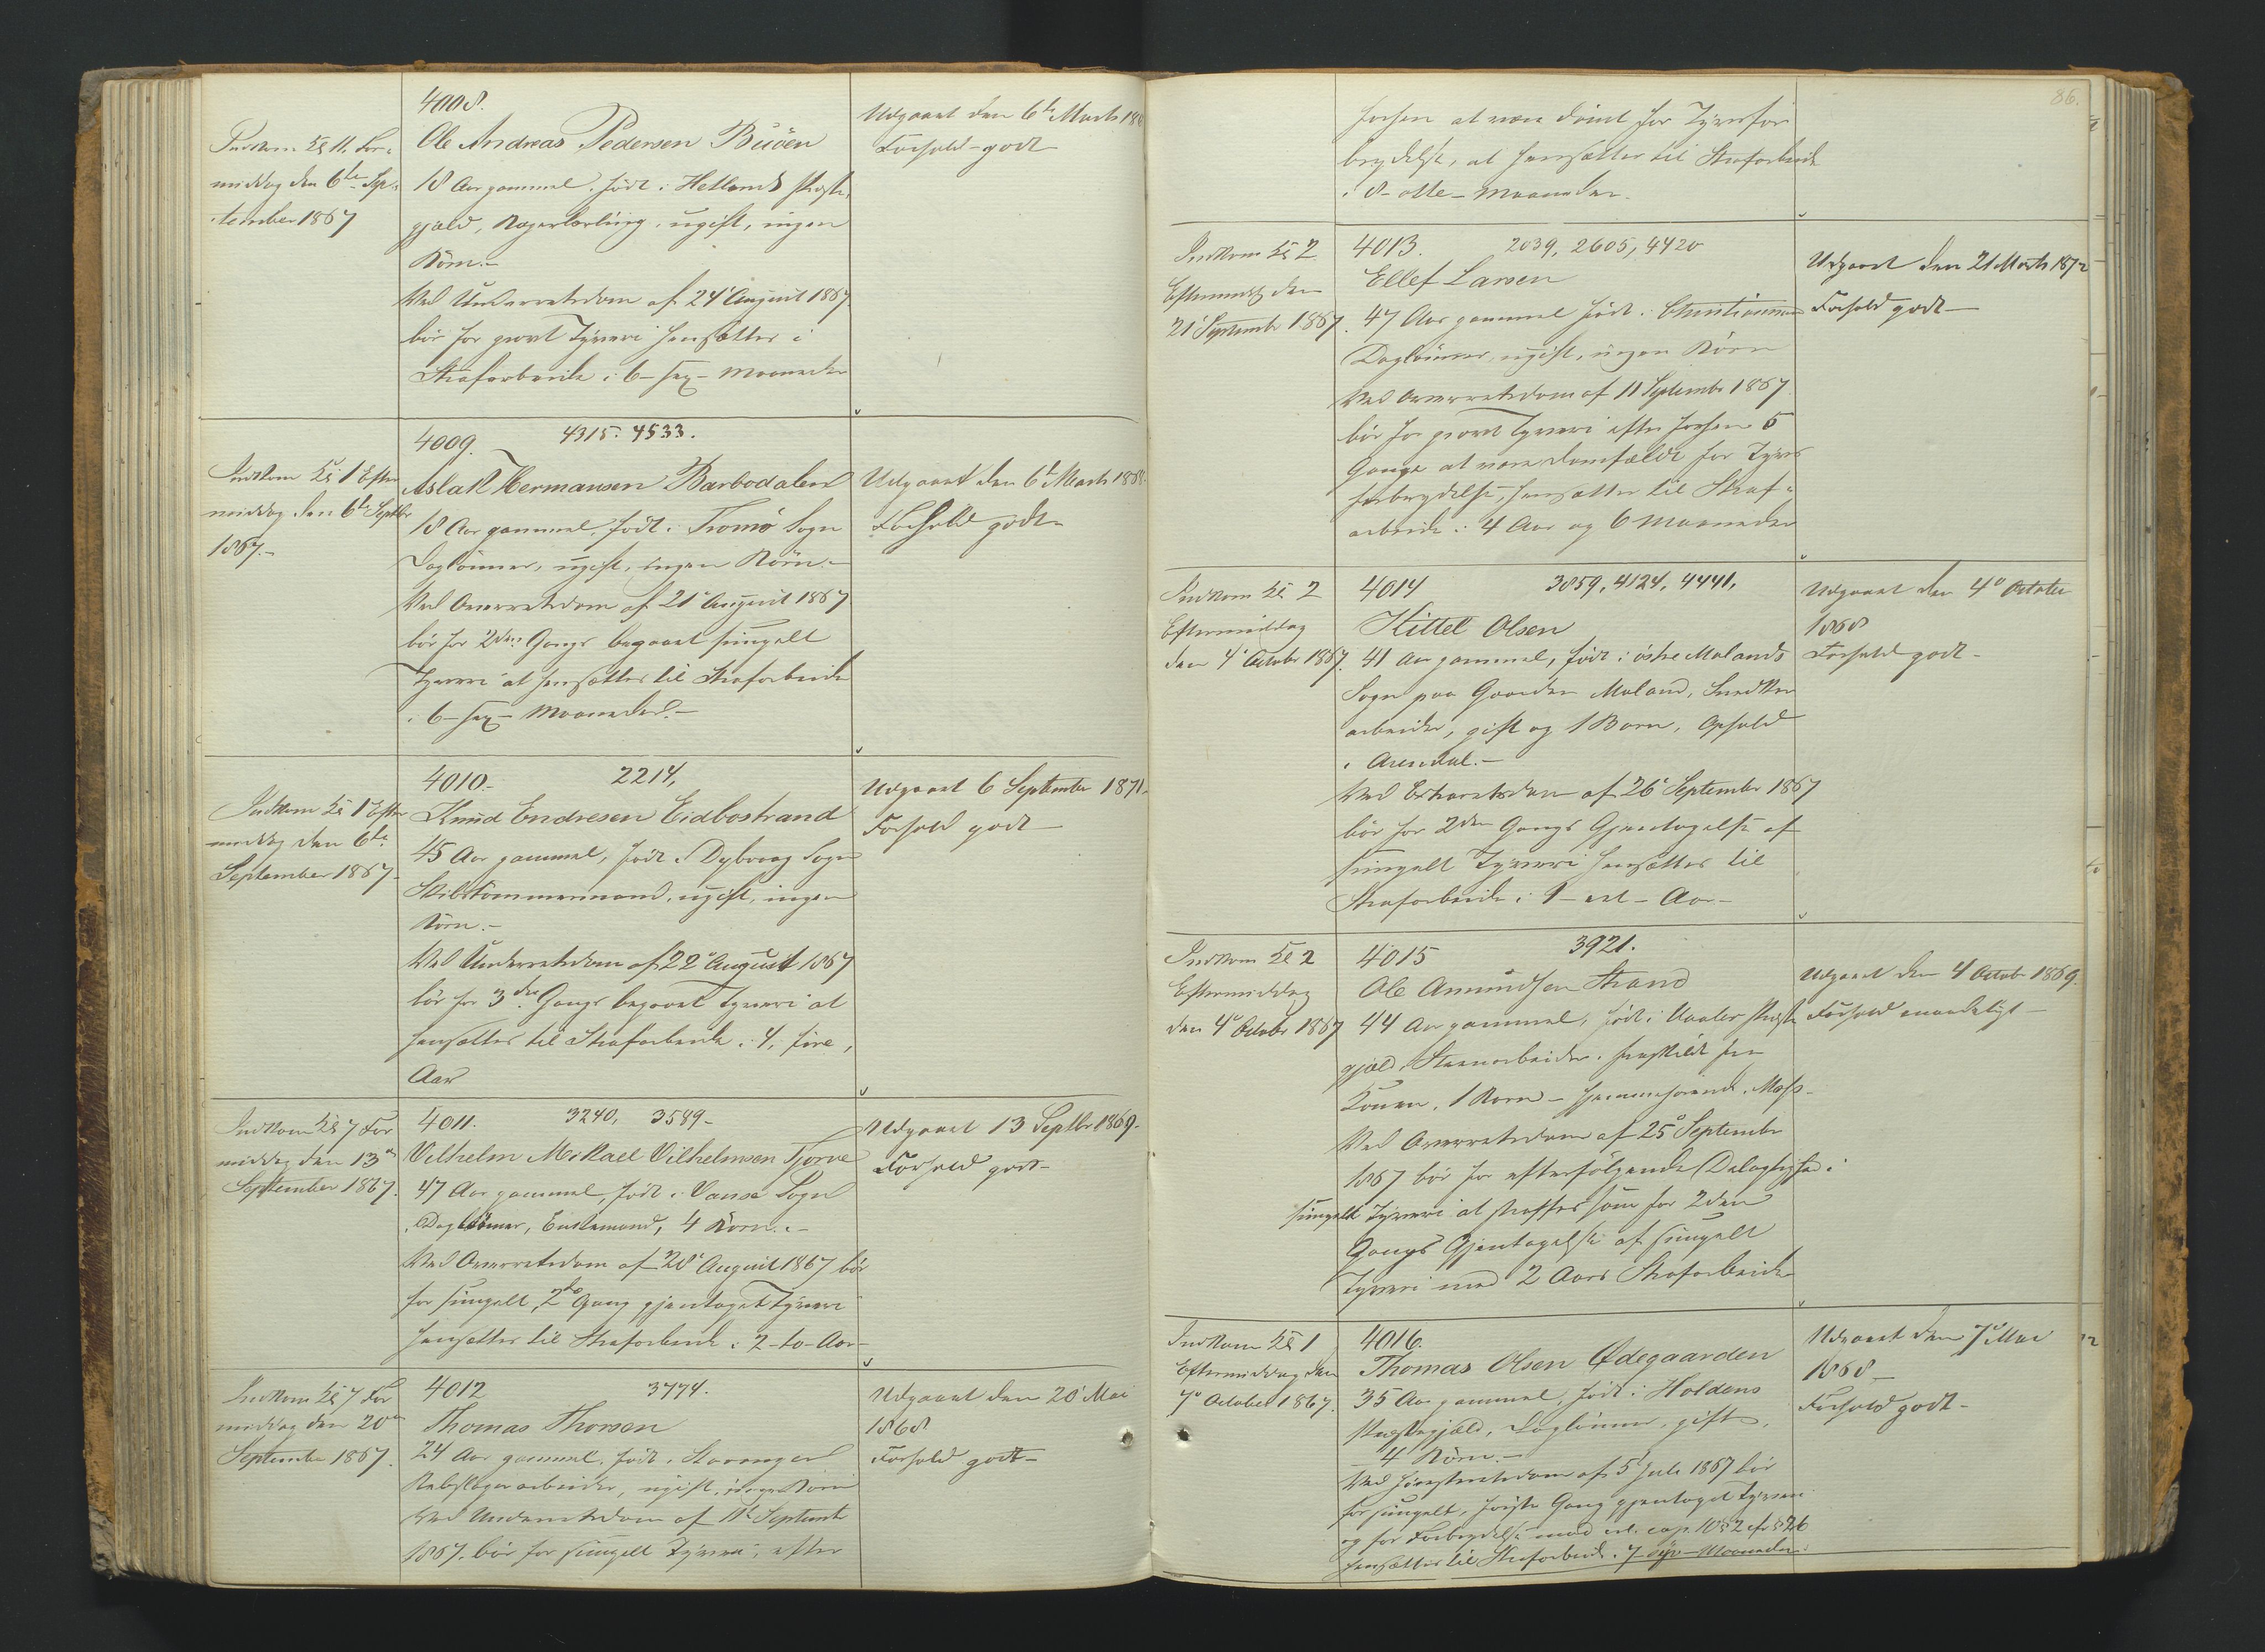 4008.
Indkom Kl 11 For=
middag den 6te Sep=
tember 1867
Ole Andreas Pedersen Buöen
18 Aar gammel, født i Hetlands Præste
gjæld, Bagerlærling, ugift, ingen
Børn.-
Ved Underretsdom af 24' August 1867
bör for grovt Tyveri hensættes i
Strafarbeide i 6 - sex - Maaneder
Udgaaet den 6te Marts
Forhold godt
4009. 4315. 4533.
Indkom Kl 1 Efter
middag den 6te Septbr
1867.-
Aslak Hermansen Barbodalen
18 Aar gammel, født i Tromö Sogn
Daglönner, ugift, ingen Børn.-
Ved Overretsdom af 21' August 1867
bör for 2den Gang begaaet simpelt
Tyveri at hensættes til Strafarbeide
i 6 - sex - Maaneder.-
Udgaaet den 6te Marts 1868.
Forhold godt
4010.- 2214,
Indkom Kl 1 Efter
middag den 6te
September 1867.
Knud Endresen Eidbostrand
45 Aar gammel, født i Dybvaag Sogn
Skibstömmermand, ugift, ingen
Børn.-
Ved Underretsdom af 22' August 1867
bör for 3die Gang begaaet Tyveri at
hensættes til Strafarbeide i 4, fire,
Aar
Udgaaet 6 September 1871.
Forhold godt
4011. 3240, 3589-
Indkom Kl 7 For
middag den 13de
September 1867.
Vilhelm Mikael Vilhelmsen Tjorve
47 Aar gammel, født i Vanse Sogn
Daglönner, Enkemand, 4 Børn.-
Ved Overretsdom af 28' August 1867 bör
for simpelt, 2de Gang gjentaget Tyveri
hensættes til Strafarbeide i 2 - to - Aar
Udgaaet 13 Septbr 1869.
Forhold godt-
4012 3774.
Indkom Kl 7 For
middag den 20de
September 1867.
Thomas Thorsen
24 Aar gammel, født i Stavanger
Rebslagerarbeider, ugift, ingen Børn
Ved Underretsdom af 11te Septembr
1867. bör for simpelt Tyveri, efter
Udgaaet den 20' Mai
1868
Forhold godt-
86.
forhen at være dömt for Tyvsfor
brydelse, at hensættes til Strafarbeide
i 8 - otte - Maaneder.
4013. 2039, 2605, 4420
Indkom Kl 2
Eftermidg den
21' September 1867.
Ellef Larsen
47 Aar gammel født i Christianssand
Daglönner, ugift, ingen Børn
Ved Overretsdom af 11 Septembr 1867
bör for grovt Tyveri efter forhen 5
Gange at være domfældt for Tyvs
forbrydelse, hensættes til Straf=
arbeide i 4 Aar og 6 Maaneder
Udgaaet den 21 Marts 1872
Forhold godt
4014 3859, 4124, 4441,
Indkom Kl 2
Eftermiddag
den 4' Octobr 1867.
Kittel Olsen
41 Aar gammel, født i östre Molands
Sogn paa Gaarden Moland, Snedker
arbeider, gift og 1 Barn, Ophold
i Arendal.-
Ved Extraretsdom af 26' September 1867
bör for 2den Gangs Gjentagelse af
simpelt Tyveri hensættes til
Strafarbeide i 1 - et - Aar-
Udgaaet den 4' October
1868
Forhold godt-
4015 3921.
Indkom Kl 2
Eftermiddag
den 4' Octobr 1867
Ole Amundsen Strand
44 Aar gammel, født i Præste
gjæld, Steenarbeider, fraskildt fra
Konen, 1 Barn - hjemmehörende Moss.
Ved Overretsdom af 25' Septembr
1867 bör for efterfölgende Delagtighed i
simpelt Tyveri at straffes som for 2den
Gangs Gjentagelse af simpelt
Tyveri med 2 Aars Strafarbeide
Udgaaet den 4 Octobr 1869.
Forhold maadeligt-
4016.
Indkom Kl 1
Eftermiddag den
7' October 1867.
Thomas Olsen Ødegaarden
35 Aar gammel, født i Holdens
Præstegjæld, Daglönner, gift,
4 Børn.-
Ved Höiesteretsdom af 5' Juli 1867 bör
for simpelt, förste Gang gjentaget Tyveri
og for Forbrydelse mod crl. cap. 10 § 2 cfr § 26
hensættes til Strafarbeide i 7 - syv - Maaneder.
Udgaaet den 7' Mai
1868-
Forhold godt-